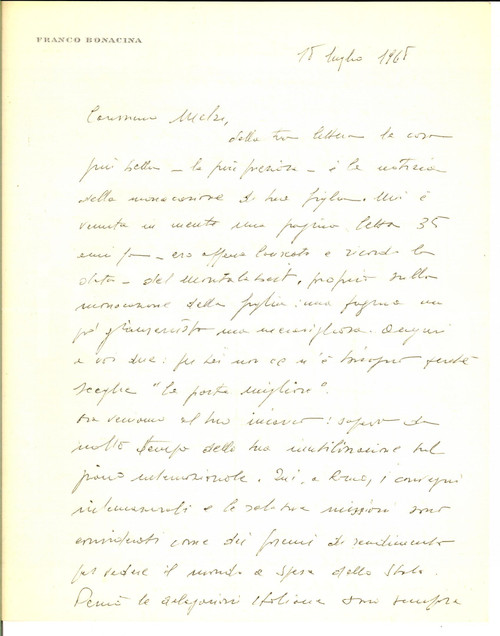 FRANCO BONACINA
15 luglio 1965
Carissimo
della tua lettera la cosa
più bella – la più preziosa – è la notizia
della monacazione di tua figlia. Mi è
venuta in mente una pagina letta 35
anni fa – ero appena laureato e ricordo la
data – del Montalembert, proprio sulla
monacazione della figlia: una pagina un
po' giansenista ma meravigliosa. Auguri
a voi due: per lei non ce n'è bisogno perché
sceglie "la parte migliore".
Ora veniamo al tuo incarico: sapevo da
molto tempo della tua utilizzazione sul
piano internazionale. Qui, a Roma, i convegni
internazionali e le relative missioni sono
considerati come dei premi di rendimento
per vedere il mondo a spese dello Stato.
Perciò le delegazioni italiane sono sempre